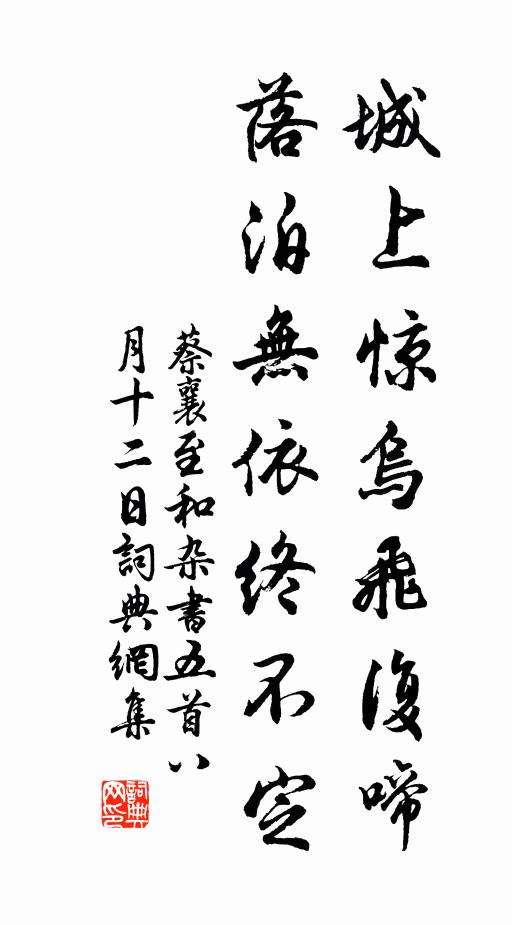 城上惊烏飛復啼
落泊無依終不定
蔡襄至和杂書五首八
月十二日詞典網集
詞典
网印